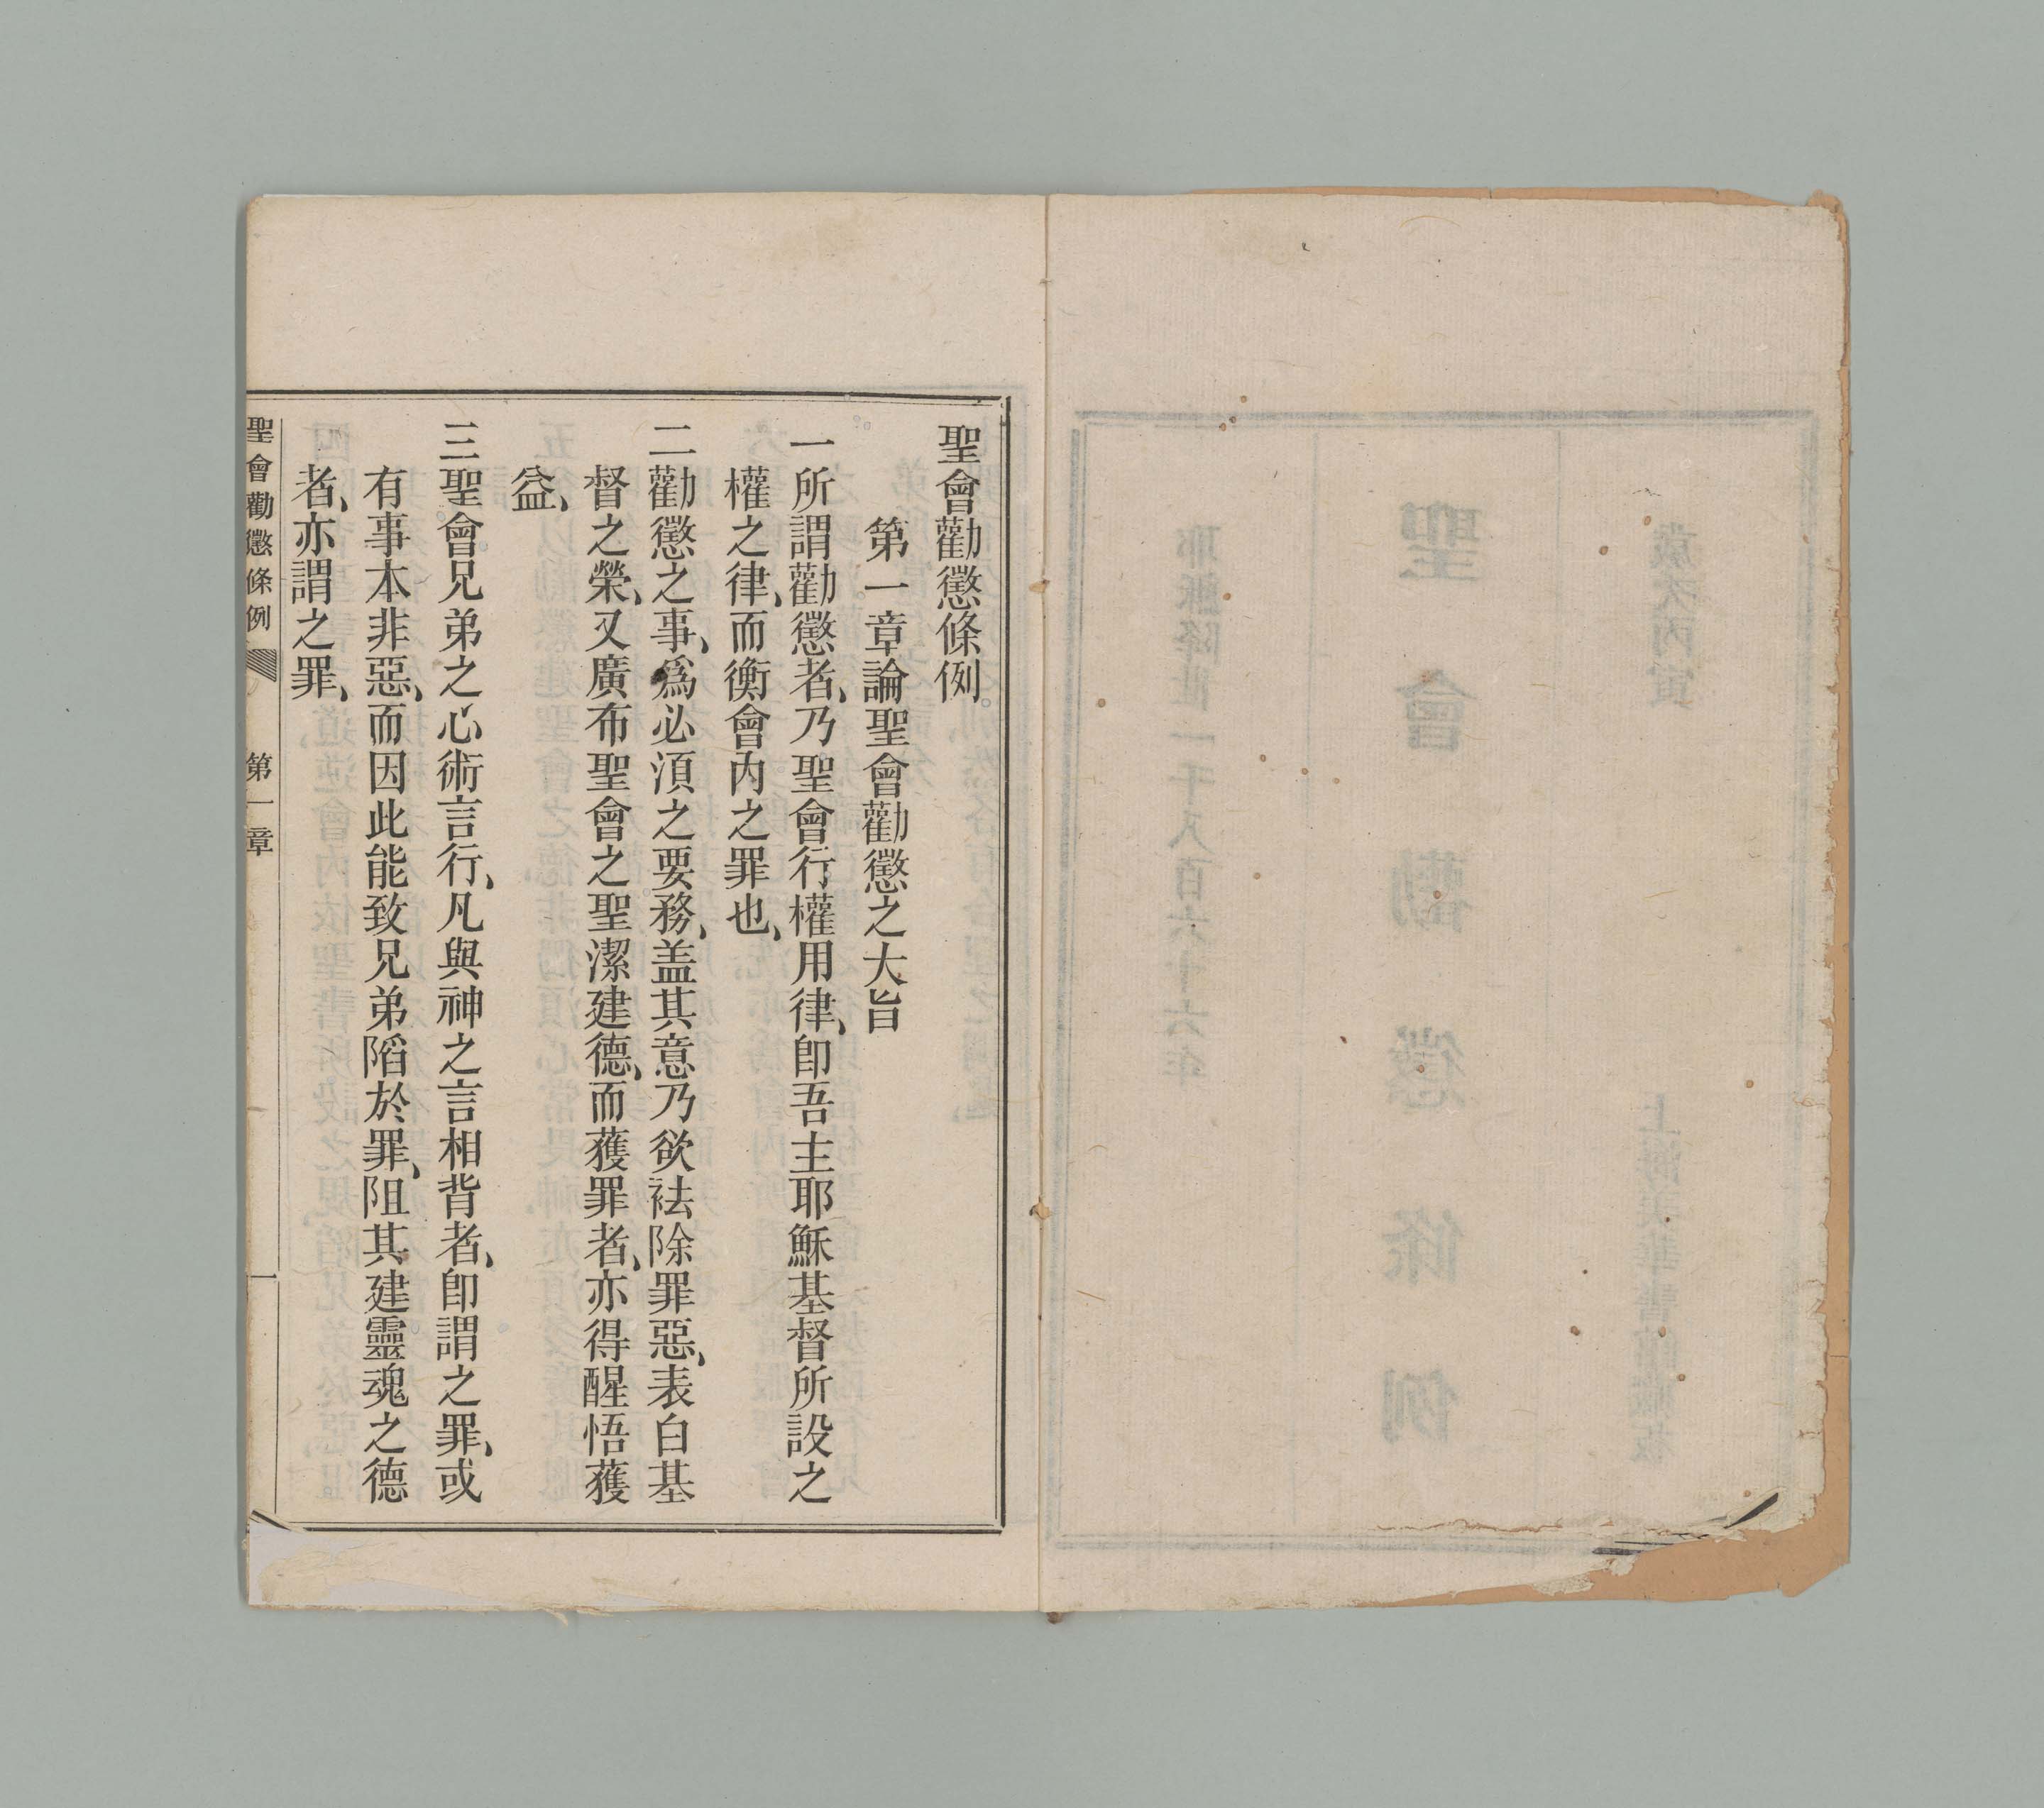 聖會勸懲條例
第一章論聖會勸懲之大旨
一所謂勸懲者、乃聖會行權用律、卽吾主耶穌基督所設之
權之律、而衡會內之罪也、
二勸懲之事、爲必須之要務、盖其意乃欲袪除罪惡、表白基
督之榮、又廣布聖會之聖潔建德、而獲罪者、亦得醒悟獲
益、
三聖會兄弟之心術言行、凡與神之言相背者、卽謂之罪、或
有事本非惡、而因此能致兄弟陷於罪、阻其建靈魂之德
者、亦謂之罪、
聖會勸懲條例 第一章 一